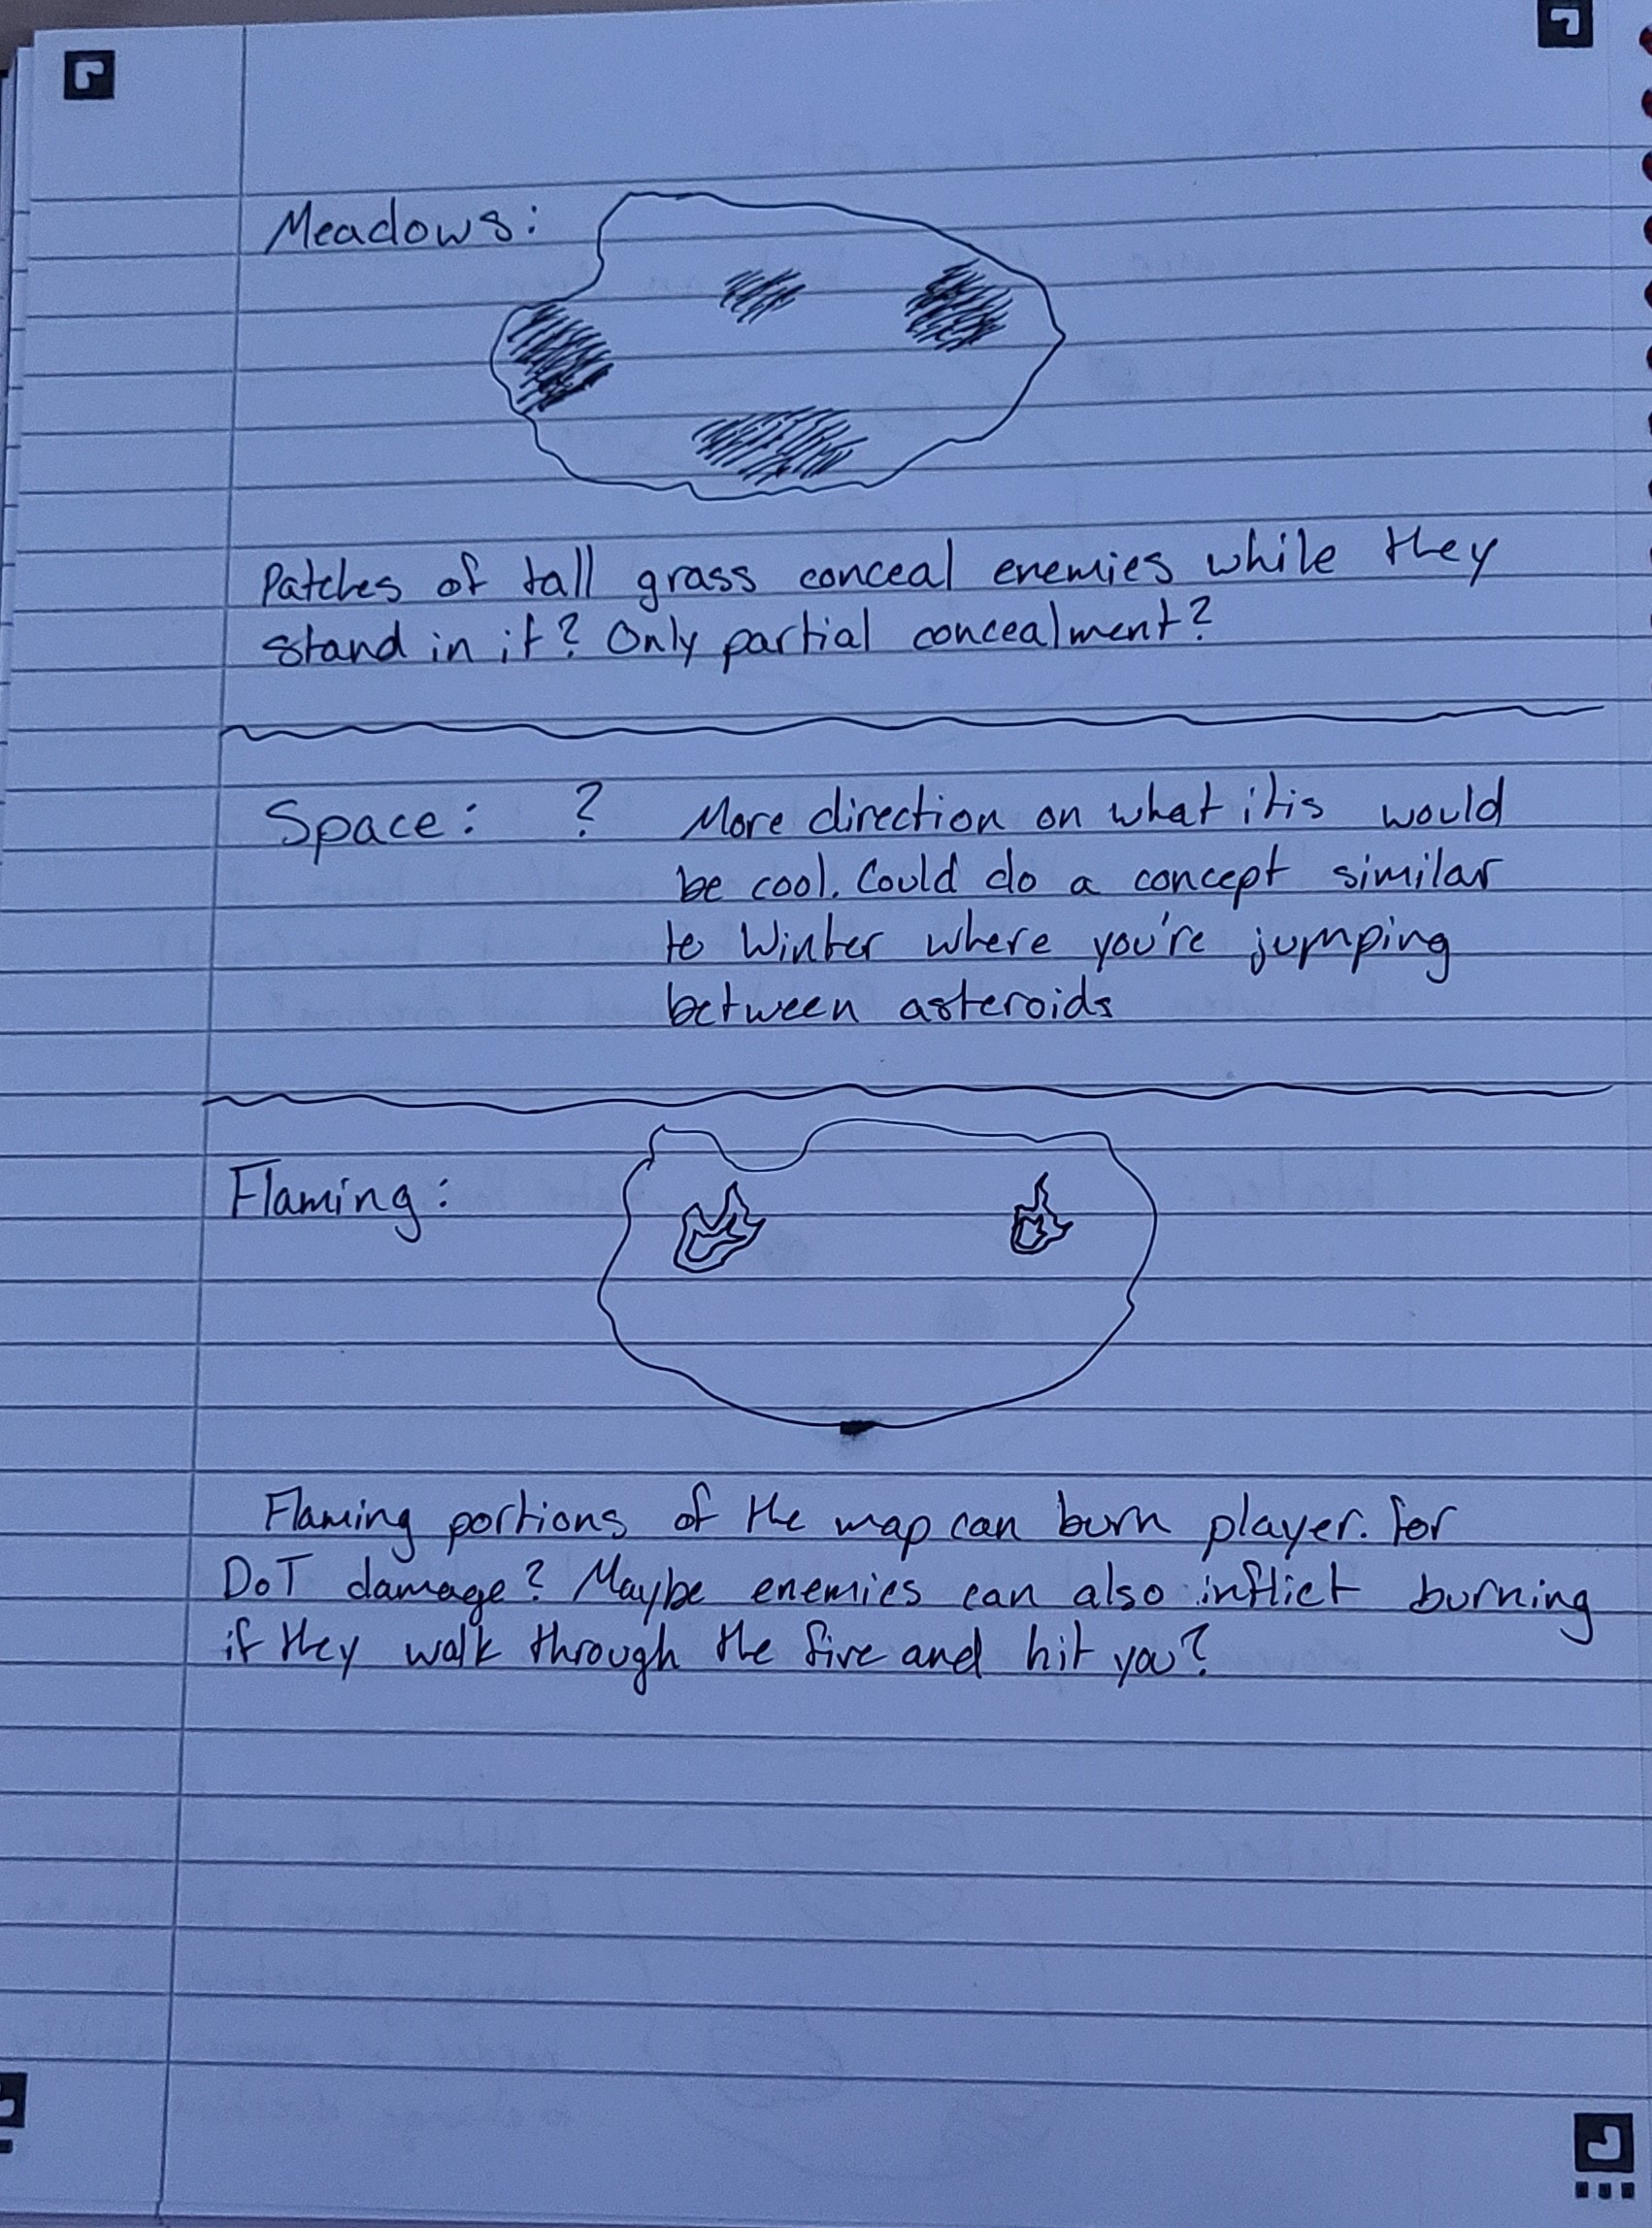 Meadows:
Patches of tall grass conceal enemies while they
stand in it? Only partial concealment?
Space: ? More direction on what it is would
be cool. Could do a concept similar
to Winter where you're jumping
between asteroids
Flaming:
Flaming portions of the map can burn player. For
DoT damage? Maybe enemies can also inflict burning
if they walk through the fire and hit you?